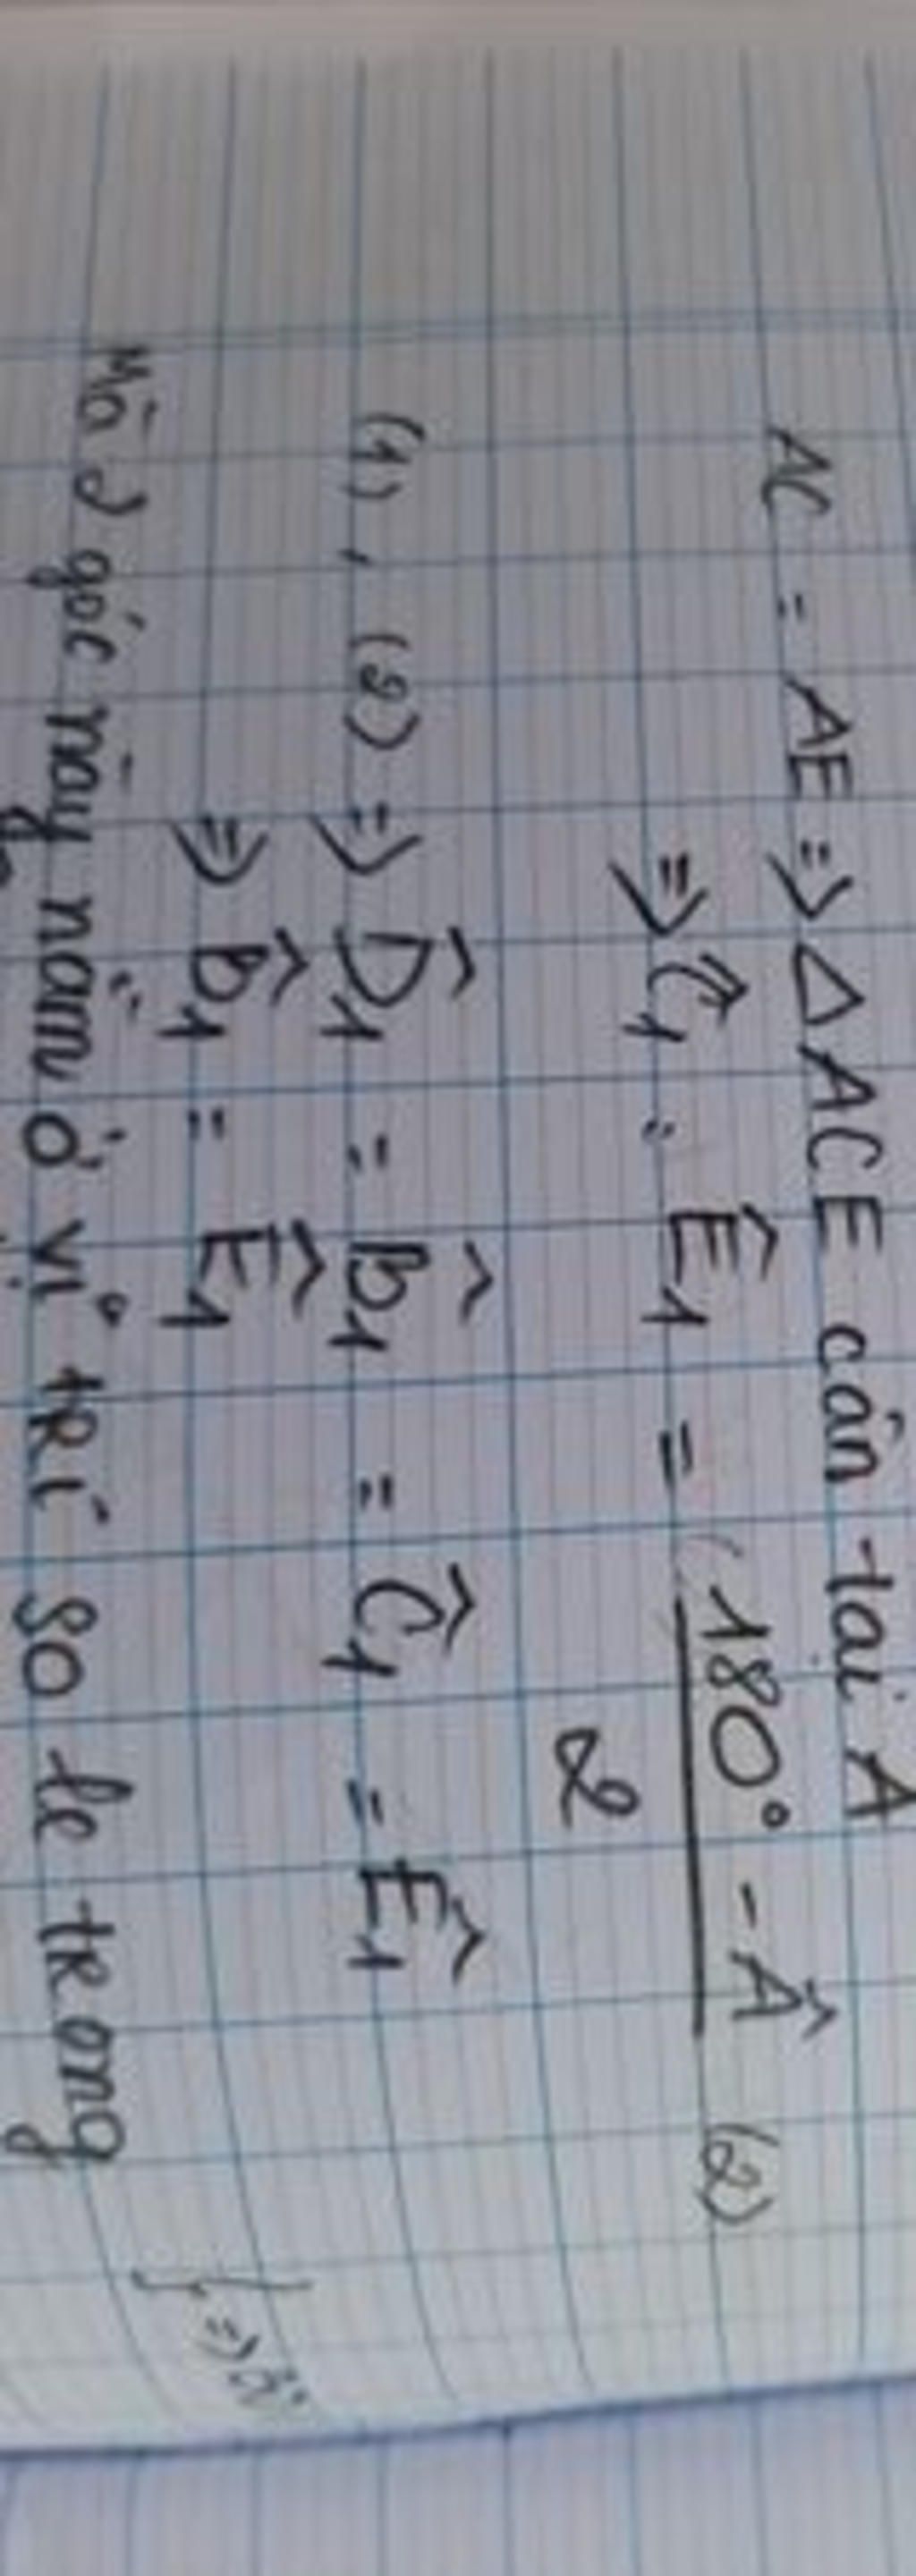 AC = AE => △ACE cân tại A
=> Ĉ₁ = Ê₁ = (180° - Â)/2 (2)
(1), (2) => D̂₁ = B̂₁ = Ĉ₁ = Ê₁
=> B̂₁ = Ê₁
Mà 2 góc này nằm ở vị trí so le trong